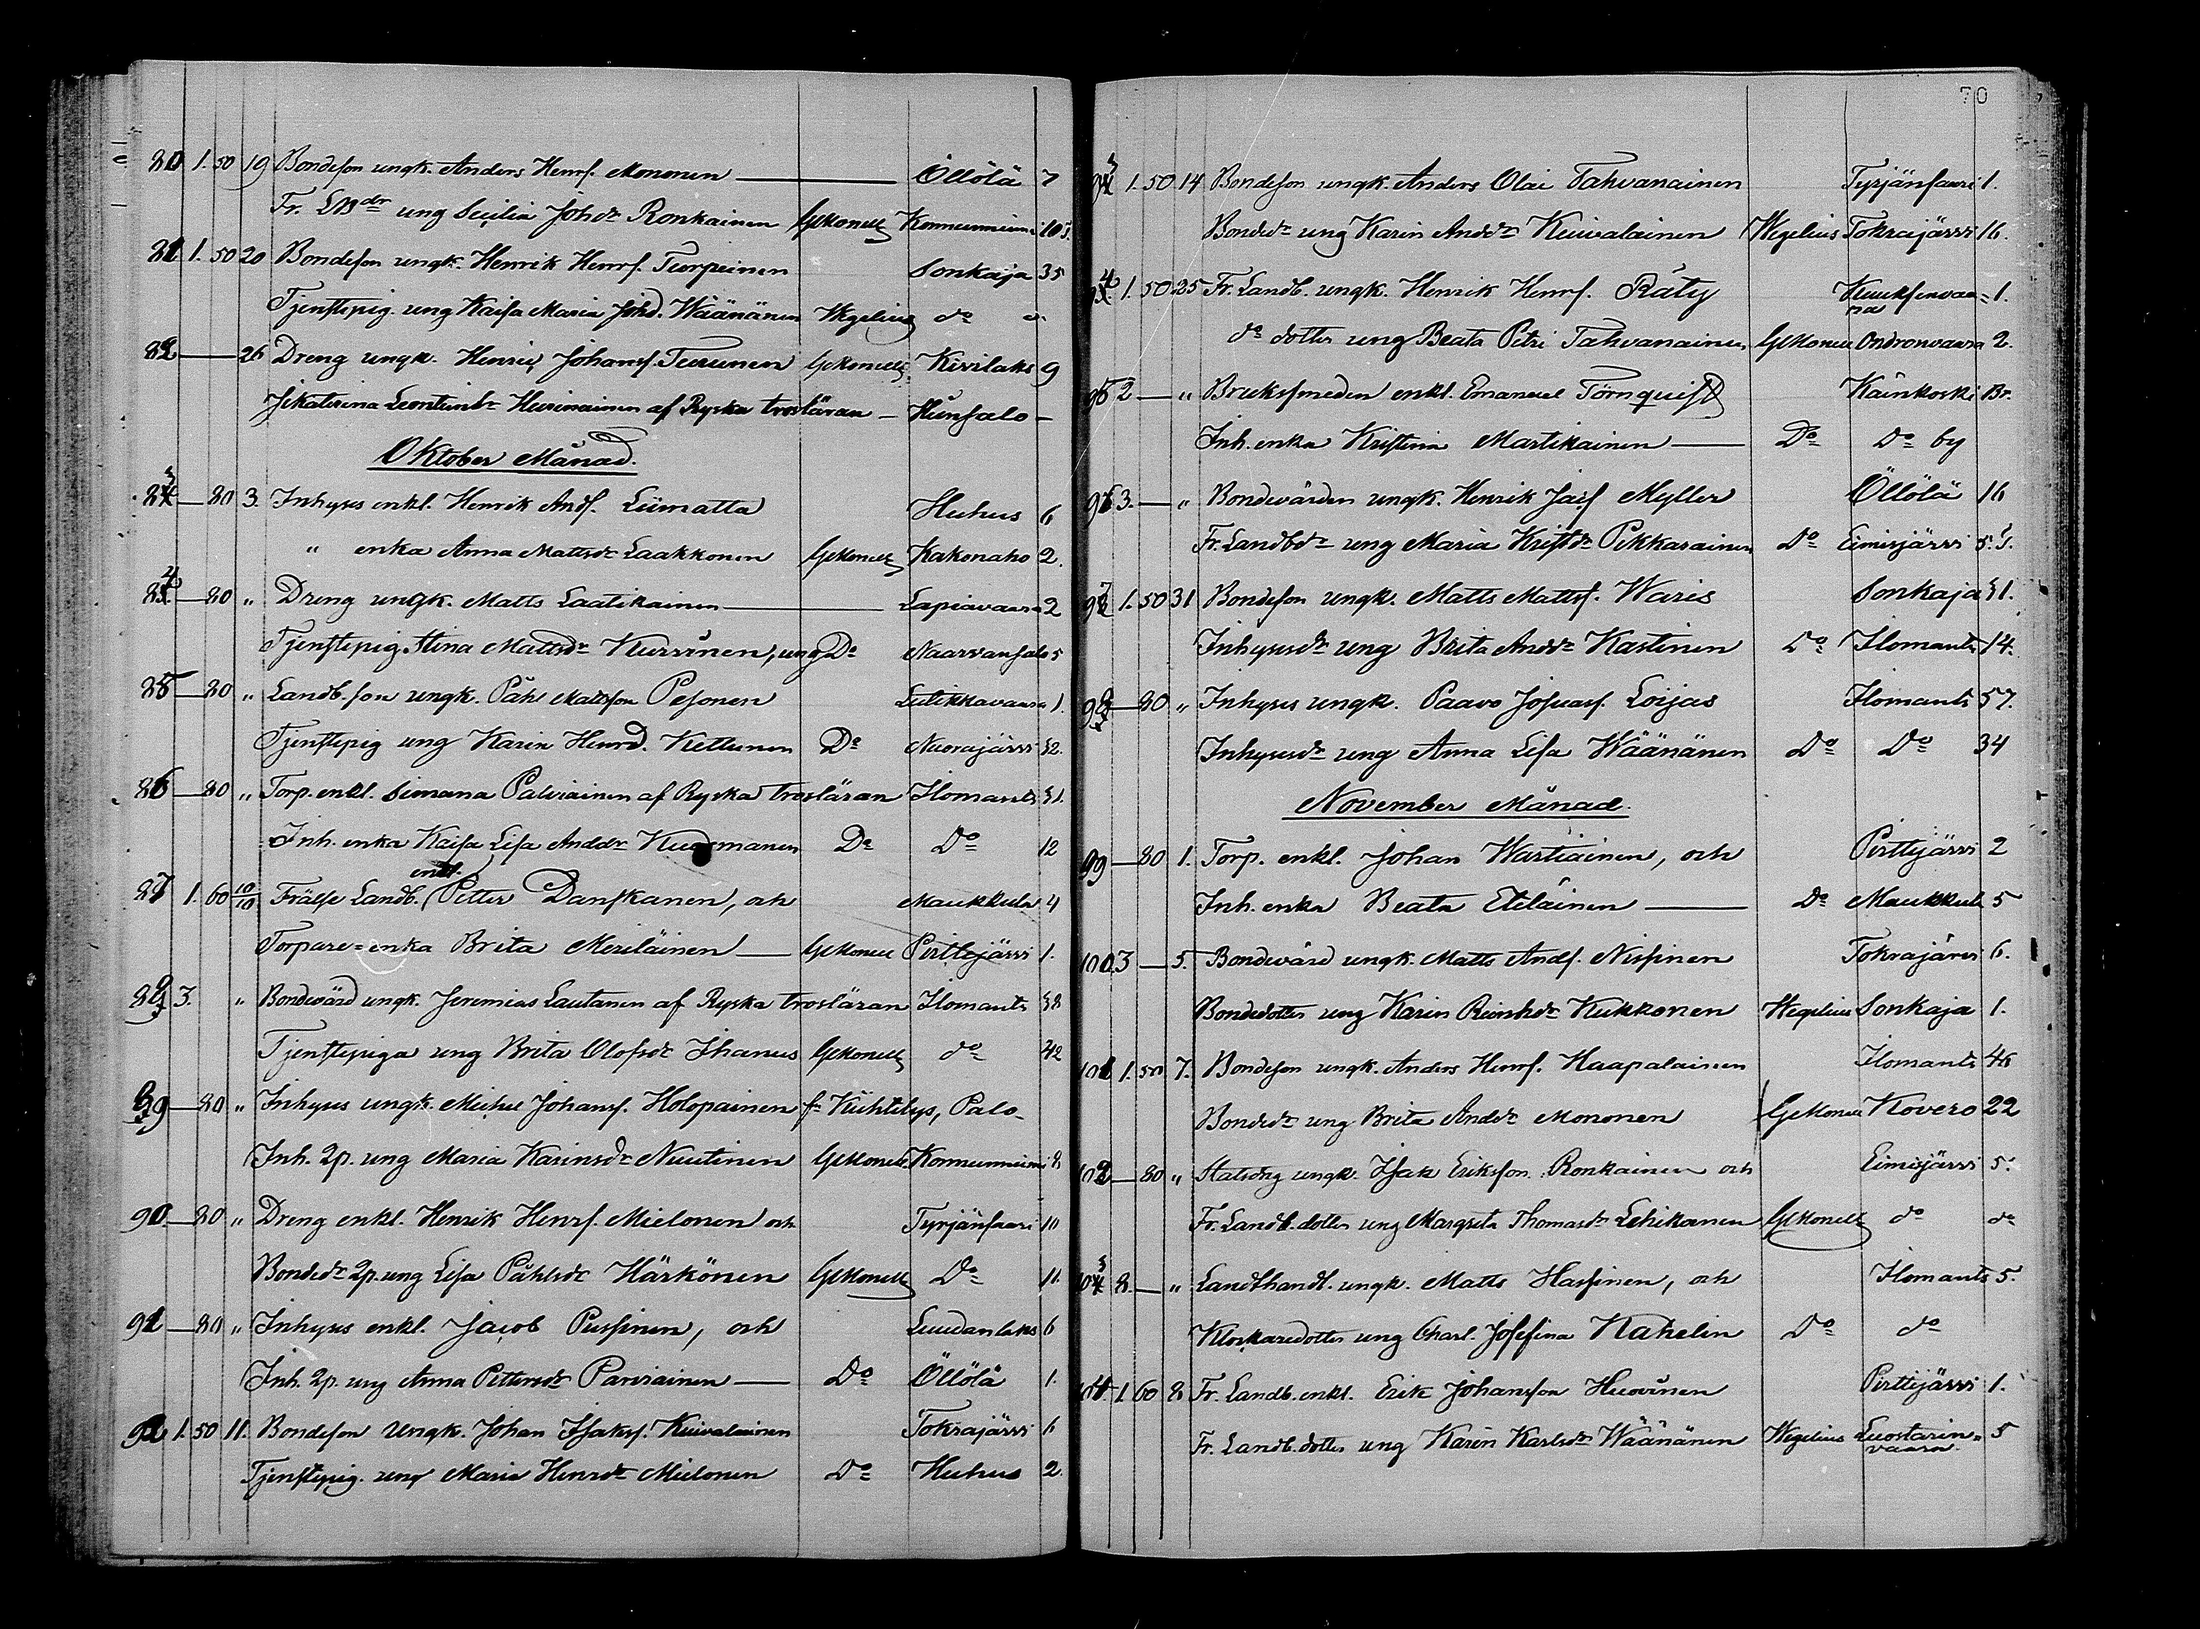 80 1. 50 19 Bondeson ungk. Anders Henrs. Mononen Öllölä 7
Fr. LBdr ung Secilia Johdr Ronkainen GMonell Konnunniemi 10 5.
81 1. 50 20 Bondeson ungk. Henrik Henrs. Turpeinen Sonkaja 35
Tjenstepig. ung Kaisa Maria Johd. Wäänänen Wegelius do
82 — 26 Dreng ungk. Henric Johanss. Turunen GMonell Kivilaks 9
Jekaterina Leontinsdr Hurinainen af Ryska trosläran — Hunsalo —
Oktober Månad.
83 — 80 3. Inhyses enkl. Henrik Ands. Liimatta Huhus 6
" enka Anna Mattsdr Laakkonen GMonell Kakonaho 2.
84 — 80 " Dreng ungk. Matts Laatikainen Lapiavaara 2
Tjenstepig Stina Mattsdr Kurvinen, ung Do Naarvansalo 5
85 — 80 " Landb. son ungk. Påhl Mattsson Pesonen Lutikkavaara 1.
Tjenstepig ung Karin Henrd. Kettunen Do Nuorajärvi 32.
86 — 80 " Torp. enkl. Simana Palviainen af Ryska trosläran Ilomants 31.
Inh. enka Kaisa Lisa Andsdr Kuosmanen Do Do 12
87 1. 60 10/10 Frälse Landb. enkl. Petter Danskanen, och Maukkula 4
Torpare-enka Brita Meriläinen — GMonell Pirttijärvi 1.
88 3. " Bondevärd ungk. Jeremias Lautanen af Ryska trosläran Ilomants 38
Tjenstepiga ung Brita Olofsdr Ihanus GMonell do 42
89 — 80 " Inhyses ungk. Michel Johanss. Holopainen fr Kiihtelys, Palo-
Inh. 2p. ung Maria Karinsdr Nuutinen GMonell Konnunniemi 8
90 — 80 " Dreng enkl. Henrik Henrs. Mielonen och Tyrjänsaari 10
Bondedr 2p. ung Lisa Påhlsdr Härkönen GMonell Do 11.
91 — 80 " Inhyses enkl. Jacob Pussinen, och Luudanlaks 6
Inh. 2p. ung Anna Pettersdr Parviainen — Do Öllölä 1.
92 1. 50 11. Bondeson Ungk. Johan Isakss. Kuivalainen Tokrajärvi 6
Tjenstepig. ung Maria Henrsdr Mielonen Do Huhus 2.
70
93 1. 50 14 Bondeson ungk. Anders Olai Tahvanainen Tyrjänsaari 1.
Bondedr ung Karin Andsdr Kuivalainen Wegelius Tokrajärvi 16.
94 1. 50 25 Fr. Landb. ungk. Henrik Henrs. Räty Kuuksenvaa= 1.
ra
do dotter ung Beata Petri Tahvanainen GMonell Ondronvaara 2.
95 2 — " Bruksfmeden enkl. Emanuel Törnquist Käinkoski Br.
Inh. enka Kristina Martikainen — Do Do by
96 3. — " Bondevärden ungk. Henrik Jacs Myller Öllölä 16
Fr. Landbdr ung Maria Kristdr Pikkarainen Do Eimisjärvi 5. 5.
97 1. 50 31 Bondeson ungk. Matts Mattss. Waris Sonkaja 31.
Inhysesdr ung Brita Andsdr Kastinen Do Ilomants 14.
98 — 80 " Inhyses ungk. Paavo Josuas. Loijas Ilomants 57.
Inhysesdr ung Anna Lisa Wäänänen Do Do 34
November Månad.
99 — 80 1. Torp. enkl. Johan Wartiainen, och Pirttijärvi 2
Inh. enka Beata Eteläinen — Do Maukkula 5
100 3 — 5. Bondevärd ungk. Matts Ands. Nissinen Tokrajärvi 6.
Bondedotter ung Karin Reinhdr Kukkonen Wegelius Sonkaja 1.
101 1. 50 7. Bondeson ungk. Anders Henrs. Haapalainen Ilomants 46
Bondedr ung Brita Andsdr Mononen GMonell Kovero 22
102 — 80 " Statsdrg ungk. Isak Eriksson Ronkainen och Eimisjärvi 5.
Fr. Landb. dotter ung Margreta Thomasdr Lehikoinen GMonell do do
103 8. — " Landthandl. ungk. Matts Hassinen, och Ilomants 5.
Klockaredotter ung Charl. Josefina Kahelin Do do
104 1. 60 8 Fr. Landb. enkl. Erik Johansson Huovinen Pirttijärvi 1.
Fr. Landb. dotter ung Karin Karlsdr Wäänänen Wegelius Luostarin= 5
vaara